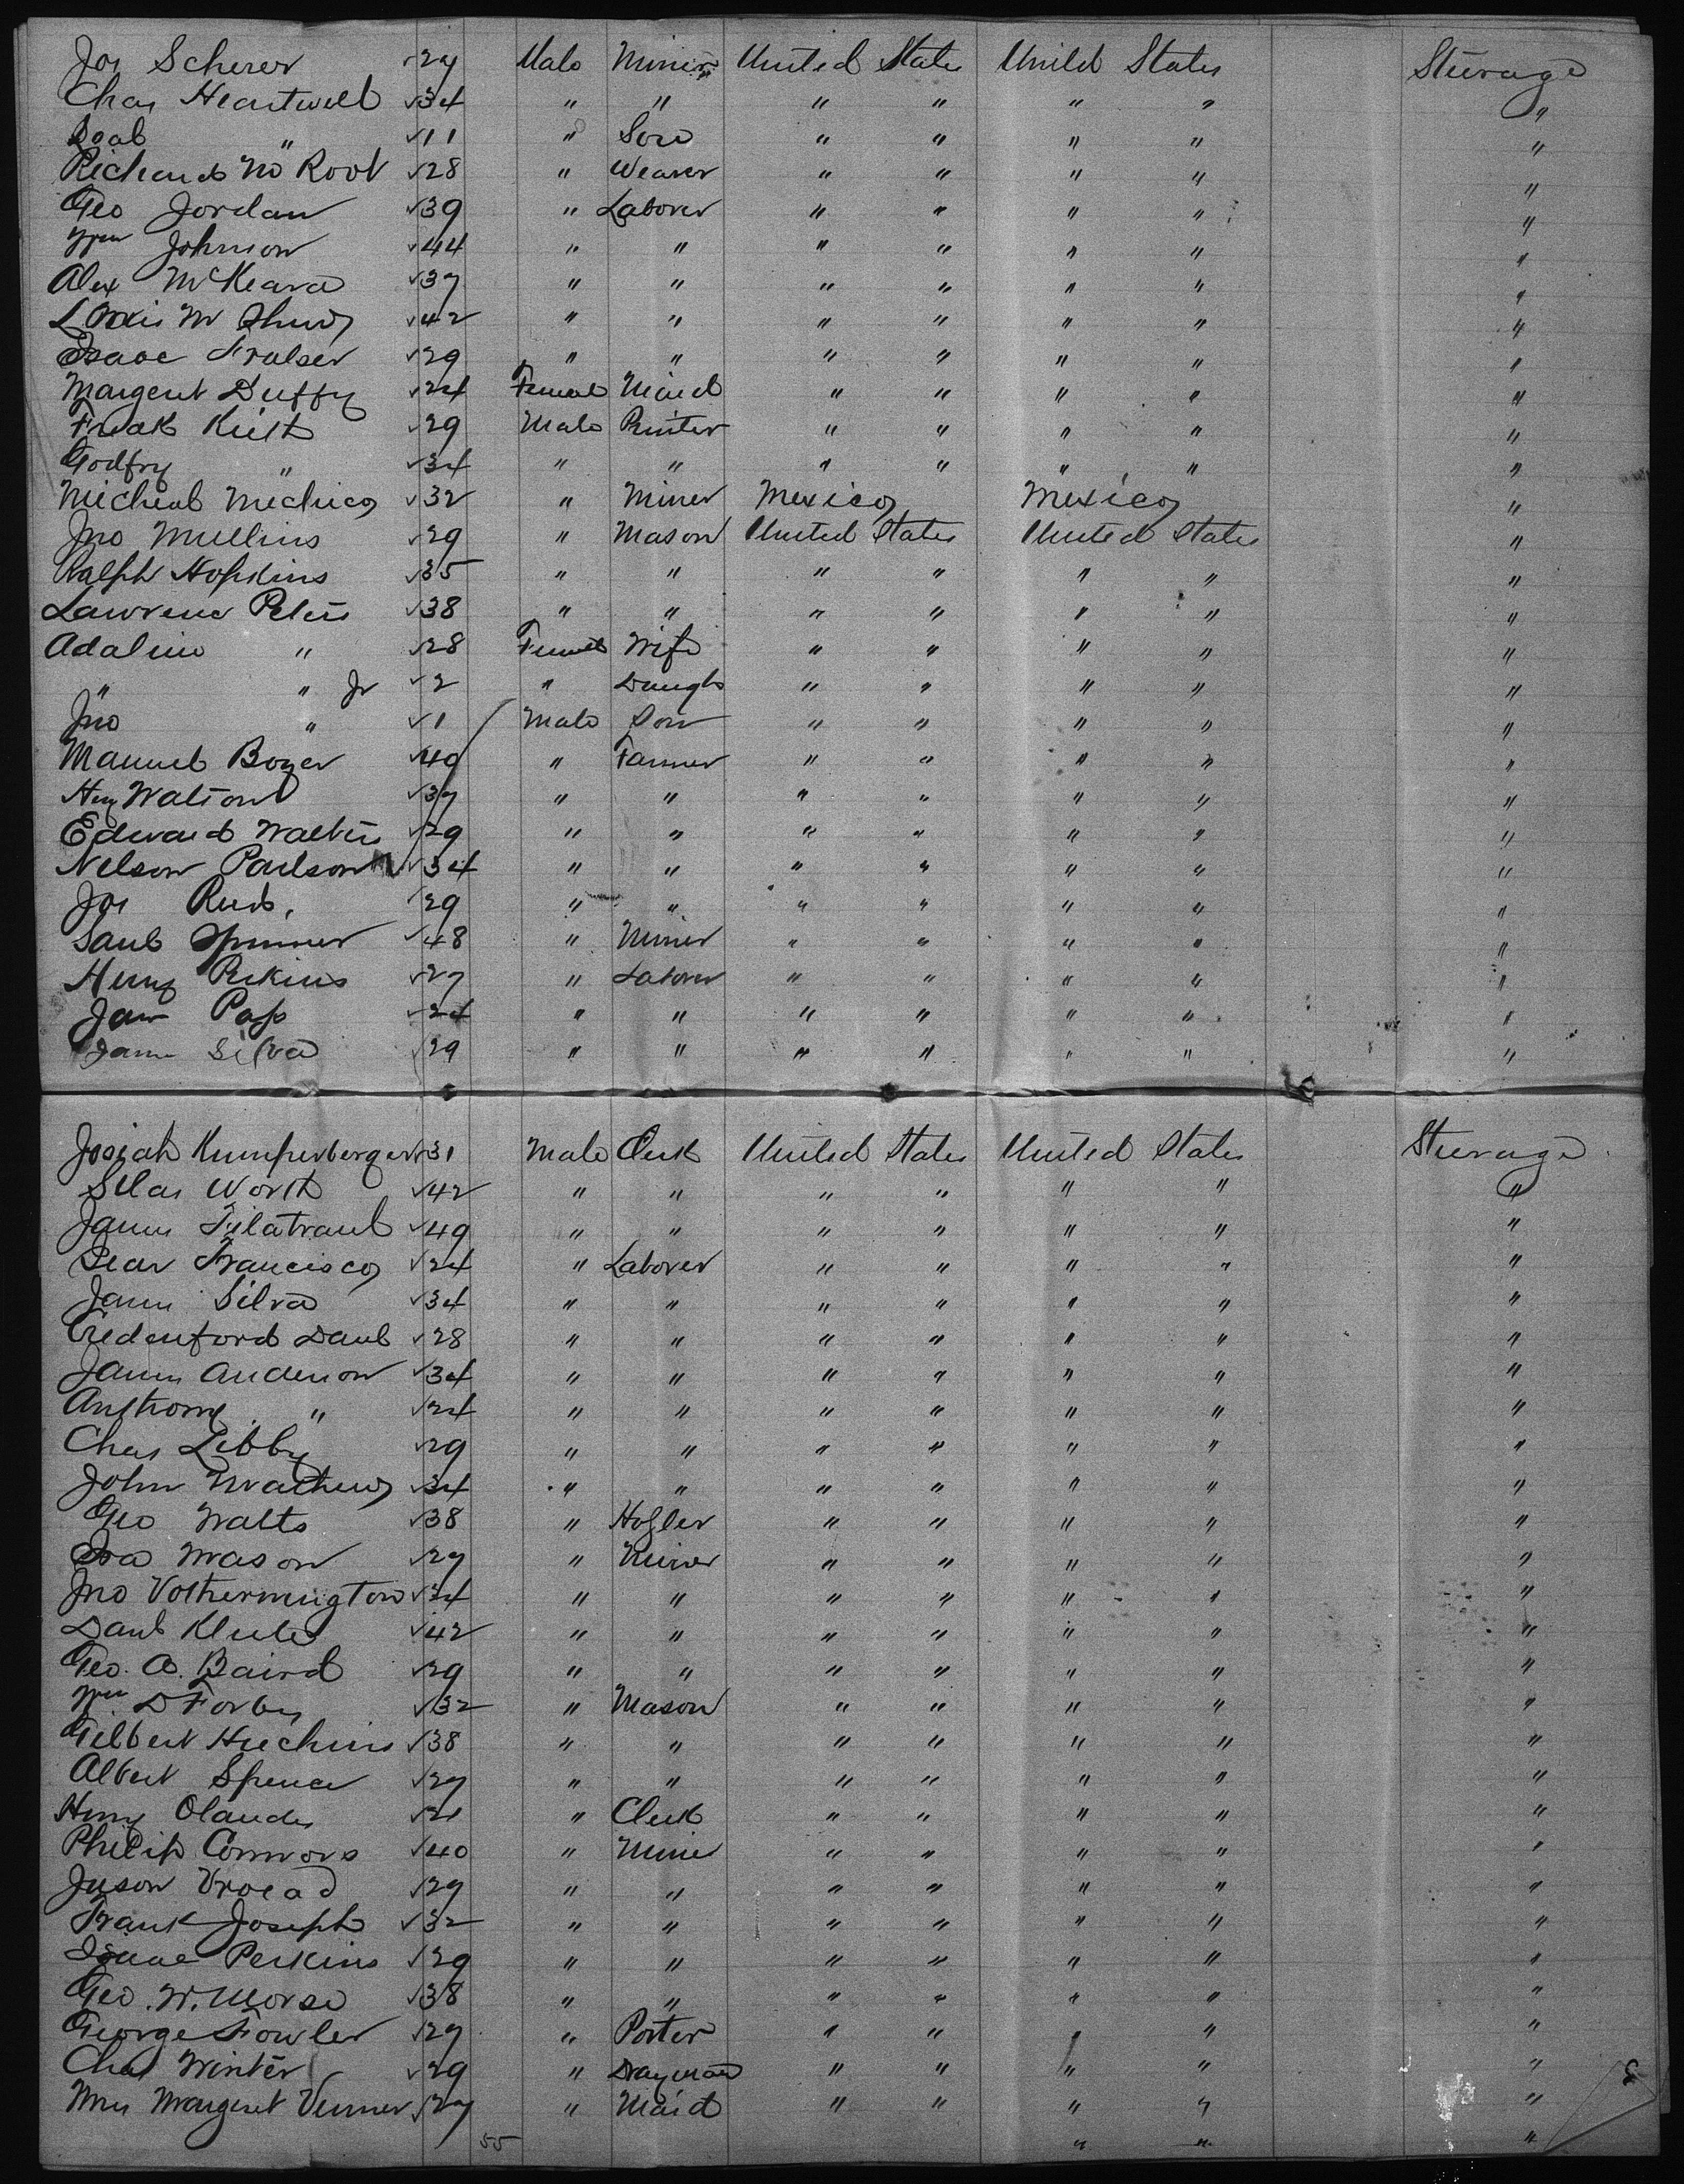 Jos Scherer 27 Male Miner United States United States Steerage
Chas Heartwell 34 " " " " " " "
" 11 " Son " " " " "
Richard M Root 28 " Weaver " " " " "
Geo Jordan 39 " Laborer " " " " "
Wm Johnson 44 " " " " " " "
Alex McKeara 37 " " " " " " "
42 " " " " " " "
Isaac 29 " " " " " " "
Margent Duffy 24 Female Maid " " " " "
29 Male Printer " " " " "
Godfry " 34 " " " " " " "
Micheal 32 " Miner Mexico Mexico "
Jno Mullins 29 " Mason United States United States "
Ralph Hopkins 35 " " " " " " "
Lawrence Peters 38 " " " " " " "
Adaline " 28 Female Wife " " " " "
" " Jr 2 " Daught " " " " "
Jno " 1 Male Son " " " " "
Manuel Boyer 49 " Farmer " " " " "
Hny Watson 37 " " " " " " "
Edward Walters 29 " " " " " " "
Nelson Poulson 34 " " " " " " "
Jos 29 " " " " " " "
48 " Miner " " " " "
Henry Perkins 27 " Laborer " " " " "
24 " " " " " " "
Silva 29 " " " " " " "
Josiah Kumperberger 31 Male Clerk United States United States Steerage
Silas Worth 42 " " " " " " "
James 49 " " " " " " "
Francisco 24 " Laborer " " " " "
James Silva 34 " " " " " " "
28 " " " " " " "
James Anderson 34 " " " " " " "
" 24 " " " " " " "
Chas Libby 29 " " " " " " "
John Mathews 34 " " " " " " "
Geo Watts 38 " Hostler " " " " "
Ira Mason 27 " Miner " " " " "
Jno Vothermington 34 " " " " " " "
42 " " " " " " "
Geo. A. Baird 29 " " " " " " "
Wm D Forbes 32 " Mason " " " " "
Gilbert Huchins 38 " " " " " " "
Albert Spencer 27 " " " " " " "
Henry 21 " Clerk " " " " "
Philip Connors 40 " Miner " " " " "
29 " " " " " " "
Frank Joseph 32 " " " " " " "
Isaac Perkins 29 " " " " " " "
Geo. W. Morse 38 " " " " " " "
George Fowler 27 " Porter " " " " "
Chas Winter 29 " Drayman " " " " "
Mrs Margeret 27 " Maid " " " " "
55 " " "